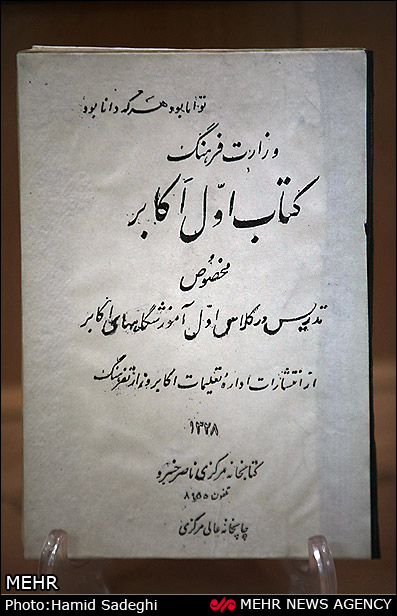 توانا بود هر که دانا بود
وزارت فرهنگ
کتاب اوّل اکابر
مخصوص
تدریس در کلاس اوّل آموزشگاههای اکابر
از انتشارات ادارهٔ تعلیمات اکابر وزارت فرهنگ
۱۳۲۸
کتابخانه مرکزی ناصر خسرو
تلفون ۸۶۵۵
چاپخانه عالی مرکزی
MEHR
Photo:Hamid Sadeghi
MEHR NEWS AGENCY